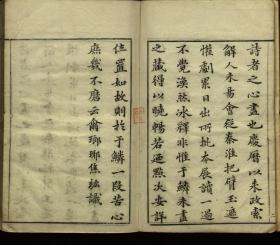 詩者之心畫也慶曆以來政索
解人未易會從秦淮把臂玉遜
惟劇累日出所批本展讀一過
不覺渙然冰釋非惟于鱗未盡
之藏得以曉暢若逐點次安詳
位置如故則於于鱗一段苦心
庶幾不磨云爾瑯琊焦竑識